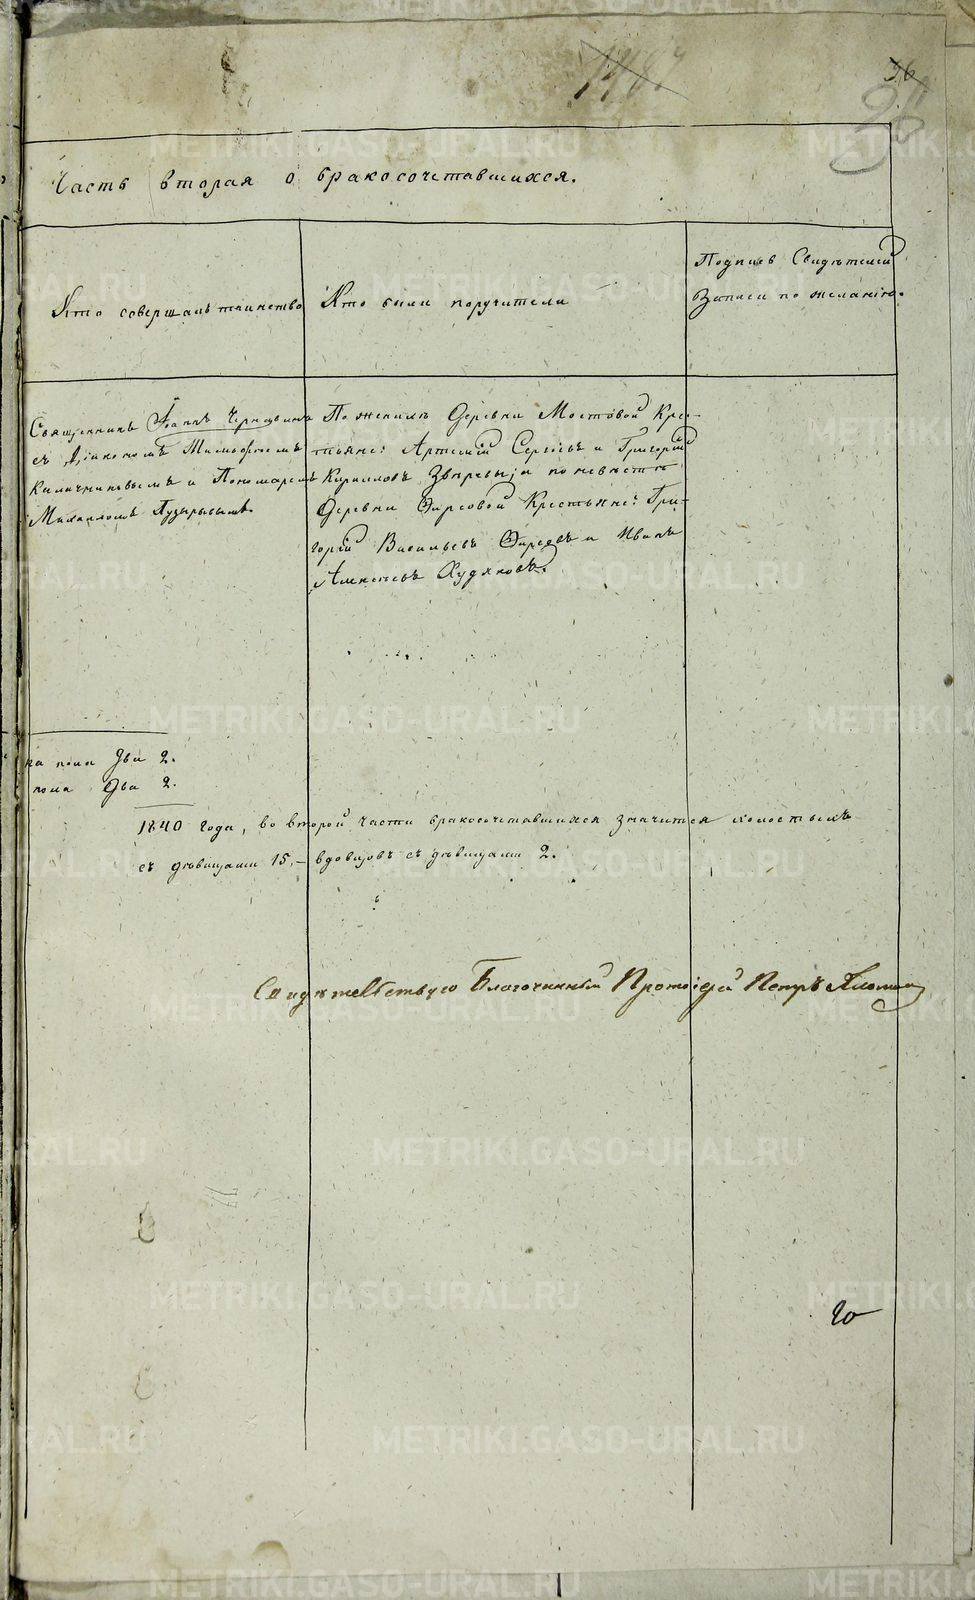 36
Часть вторая о бракосочетавшихся.
Кто совершалъ таинство
Кто были поручители
Подпись Свидѣтелей
Записи по желанію.
Священникъ Іоаннъ
съ Діакономъ
и Пономаремъ
Михаиломъ Пузыревымъ.
По женихѣ Деревни Мостовой Кре-
стьяне: Артемій Сергѣевъ и Григорій
Кириловъ Звѣревы; а по невѣстѣ
Деревни Фирсовой Крестьяне: Гри-
горій Васильевъ Фирсовъ и Иванъ
Алексѣевъ Худяковъ.
пола Два 2.
пола Два 2.
1840 года, во второй части бракосочетавшихся значится холостыхъ
съ дѣвицами 15, – вдовцовъ съ дѣвицами 2.
Свидѣтельствую Благочинный Протоіерей Петръ
METRIKI.GASO-URAL.RU